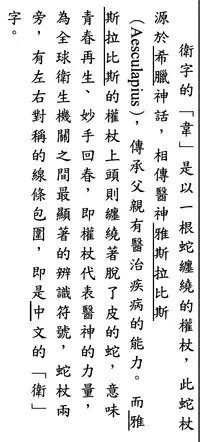 衛字的「韋」是以一根蛇纏繞的權杖，此蛇杖
源於希臘神話，相傳醫神雅斯拉比斯
（Aesculapius），傳承父親有醫治疾病的能力。而雅
斯拉比斯的權杖上頭則纏繞著脫了皮的蛇，意味
青春再生、妙手回春，即權杖代表醫神的力量，
為全球衛生機關之間最顯著的辨識符號，蛇杖兩
旁，有左右對稱的線條包圍，即是中文的「衛」
字。